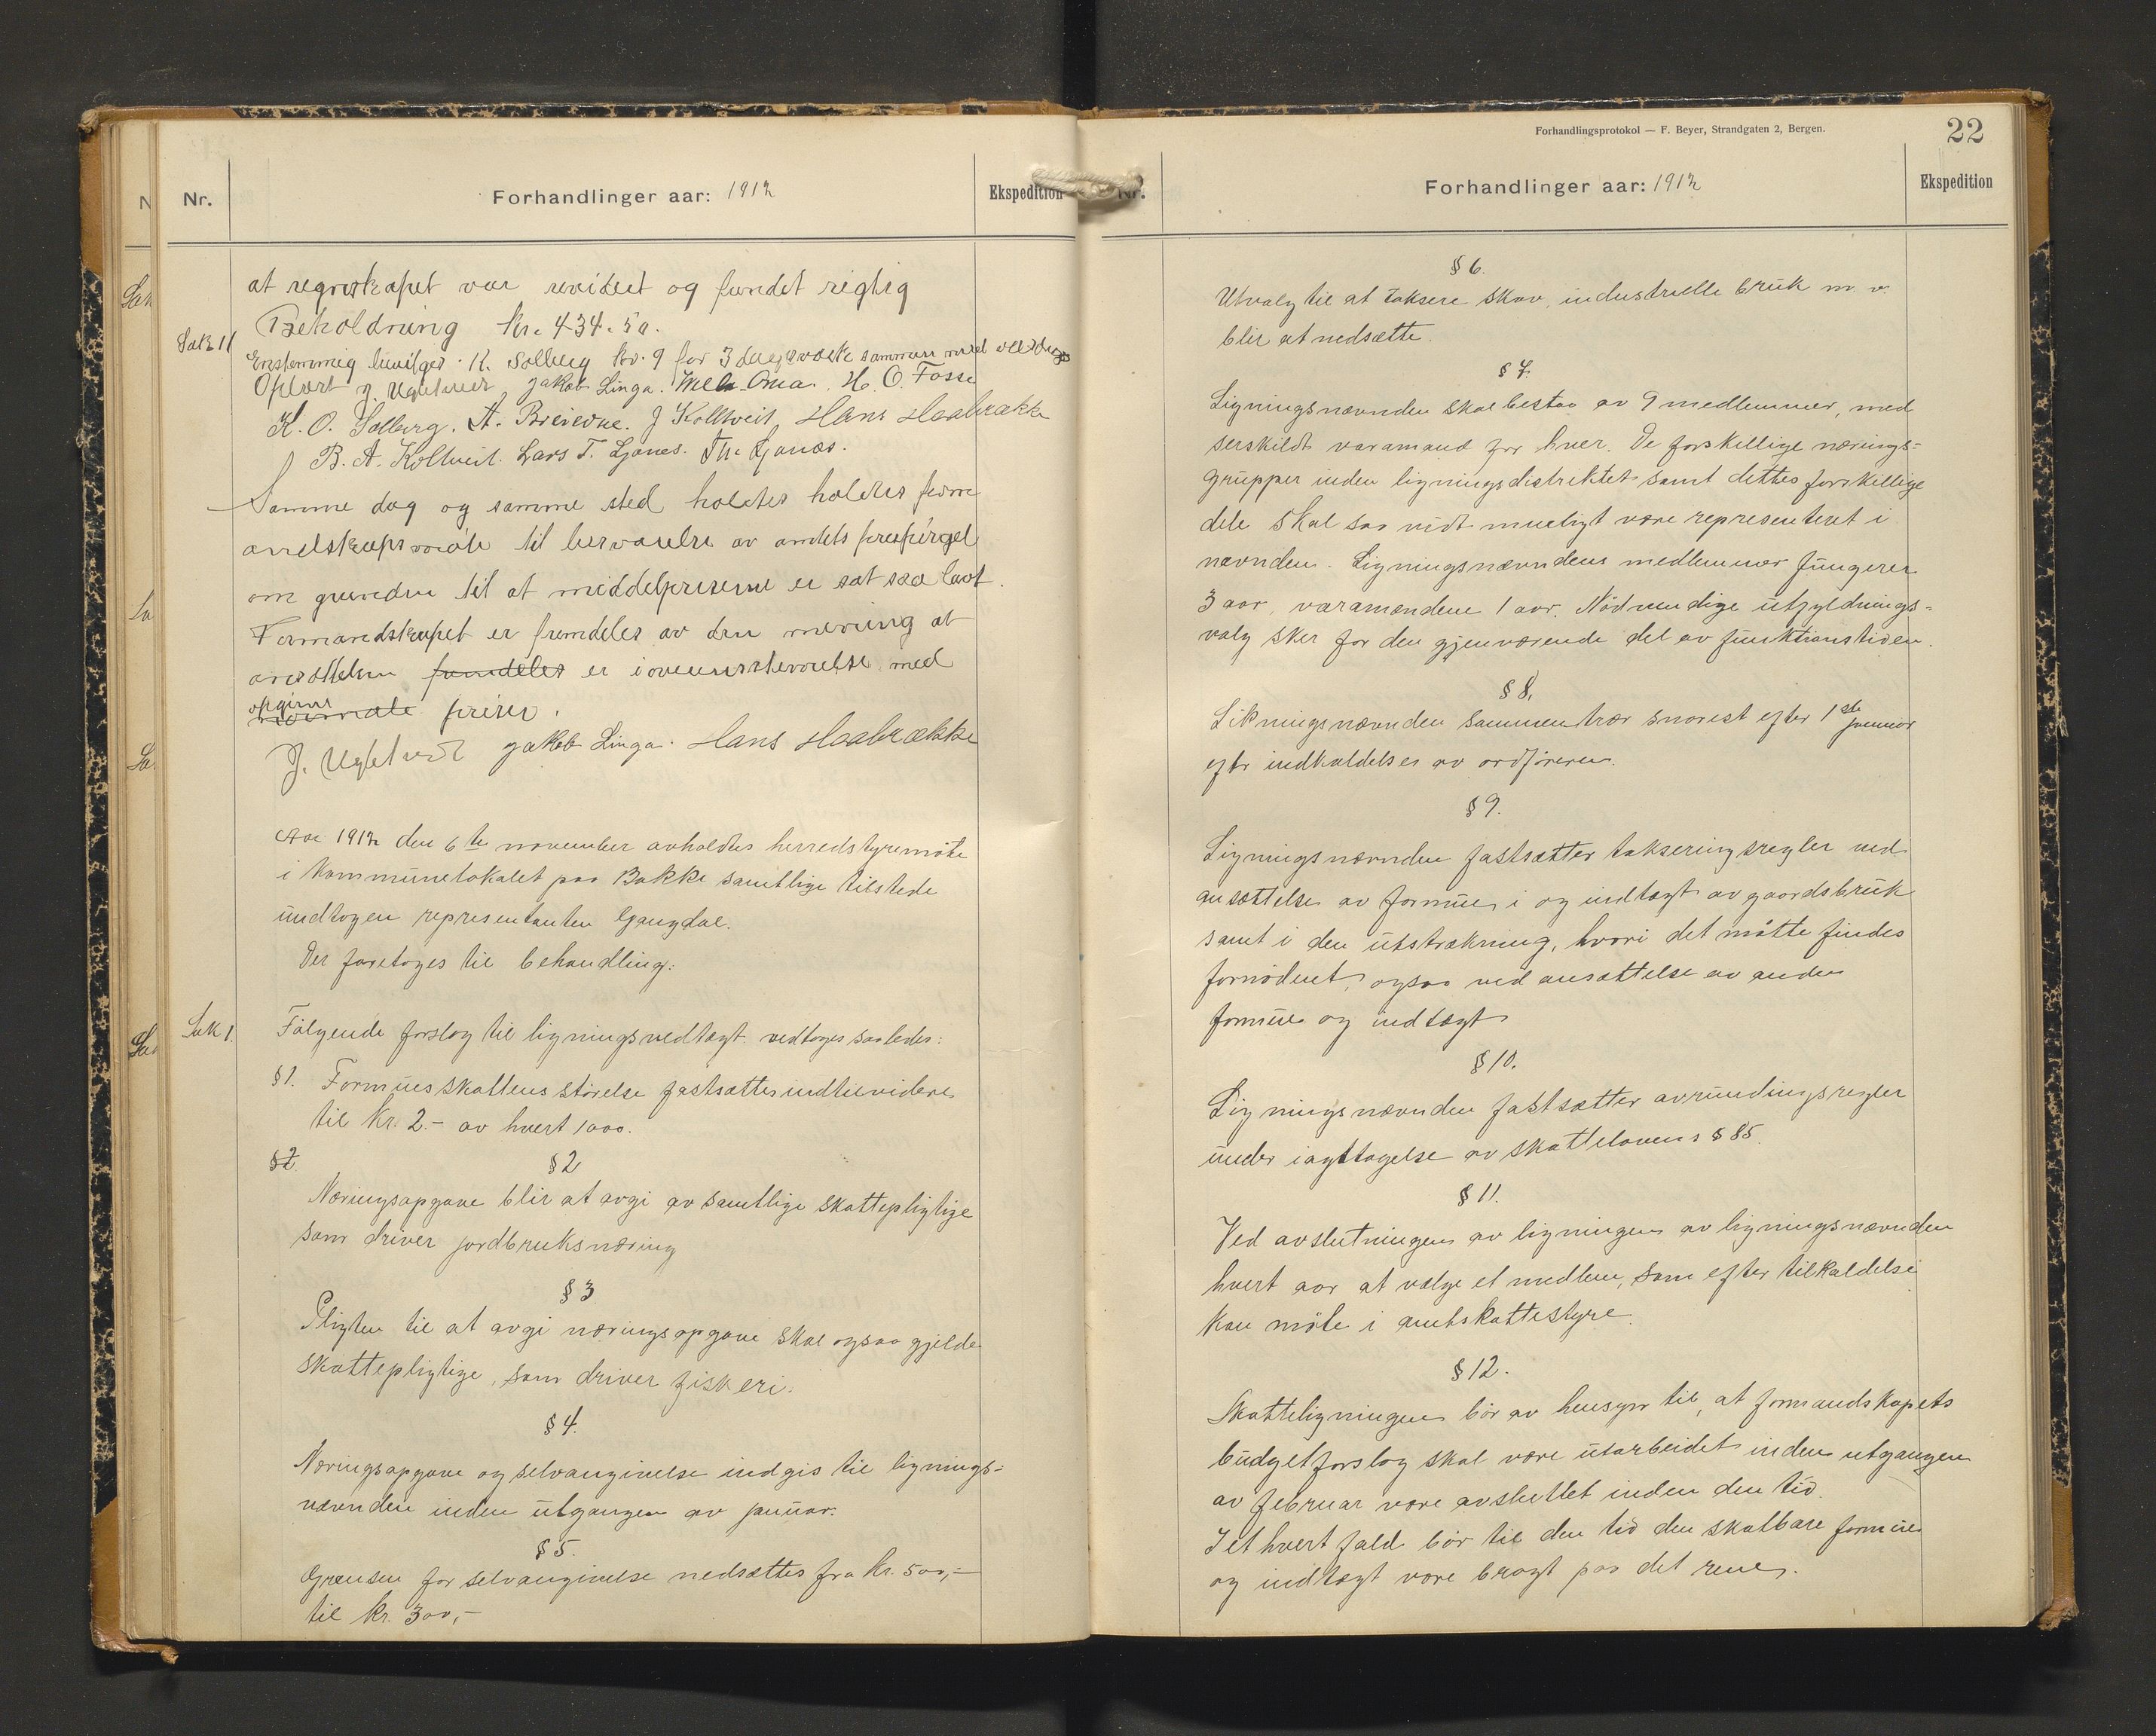 Nr.
Forhandlinger aar: 1912
Ekspedition
at regnskapet var revidert og fundet rigtig
Beholdning kr. 434.50.
Sak 11
Enstemmig bevilges K. Solberg kr. 9 for 3 dages
Oplæst J. Ugletveit Jakob Linga. H. O. Fosse
K. O. Solberg. A. J Koltveit Hans Haabrække
B. A. Koltveit. Lars T. Ljones. Th. Ljones.
Samme dag og samme sted holdtes holdtes form
andskapsmøte til besvarelse av amtets forespørgel
om grunden til at middelpriserne er sat saa lavt.
Formandskapet er fremdeles av den mening at
ansættelsen fremdeles er i overensstemmelse med
opgivne
normale priser.
J. Ugletveit Jakob Linga. Hans Haabrække
Aar 1912 den 6te november avholdtes herredstyremöte
i kommunelokalet paa Bakke samtlige tilstede
undtagen representanten Gangdal.
Der foretoges til behandling:
Sak 1.
Følgende forslag til ligningsvedtægt vedtoges saaledes:
§1. Formuesskattens störelse fastsættes indtilvidere
til kr. 2.- av hvert 1000.
§2
§2
Næringsopgave blir at avgi av samtlige skattepligtige
som driver jordbruksnæring
§3
Pligten til at avgi næringsopgave skal ogsaa gjelde
skattepligtige, som driver fiskeri.
§4.
Næringsopgave og selvangivelse indgis til lignings=
nævnden inden utgangen av januar.
§5.
Grænsen for selvangivelse nedsættes fra kr. 500,-
til kr. 300,-
Forhandlingsprotokol — F. Beyer, Strandgaten 2, Bergen.
22
Nr.
Forhandlinger aar: 1912
Ekspedition
§6.
Utvalg til at taksere skov, industrielle bruk m. v.
blir at nedsætte.
§7.
Ligningsnævnden skal bestaa av 9 medlemmer, med
serskildt varamand for hver. De forskellige nærings=
grupper inden ligningsdistriktet samt dettes forskillige
dele skal saa vidt mueligt være representeret i
nævnden. Ligningsnævndens medlemmer fungerer
3 aar, varamændene 1 aar. Nödvendige utfyldnings=
valg sker for den gjenværende del av funktionstiden.
§8.
Likningsnævnden sammentrær snarest efter 1ste januar
efter indkaldelse av ordföreren.
§9.
Ligningsnævnden fastsætter takseringsregler ved
ansættelse av formue i og indtægt av gaardsbruk
samt i den utstrækning, hvori det måtte findes
fornödent, ogsaa ved ansættelse av anden
formue og indtægt
§10.
Ligningsnævnden fastsætter avrundingsregler
under iagttagelse av skattelovens §85.
§11.
Ved avslutningen av ligningen av ligningsnævnden
hvert aar at vælge et medlem, som efter tilkaldelse
kan möte i amtskattestyre.
§12.
Skatteligningen bör av hensyn til, at formandskapets
budgetforslag skal være utarbeidet inden utgangen
av februar være avsluttet inden den tid.
I ethvert fald bör til den tid den skatbare formue
og indtægt være bragt paa det rene.